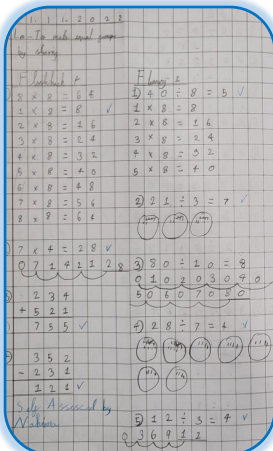 1.11.2022
Lo - To make equal groups
by sharing
Flashback 4
1) 8 x 8 = 64
1 x 8 = 8
2 x 8 = 16
3 x 8 = 24
4 x 8 = 32
5 x 8 = 40
6 x 8 = 48
7 x 8 = 56
8 x 8 = 64
7 x 4 = 28
0 7 14 21 28
234
+ 521
755
352
- 231
121
Self Assessed by
Fluency
1) 40 ÷ 8 = 5
1 x 8 = 8
2 x 8 = 16
3 x 8 = 24
4 x 8 = 32
5 x 8 = 40
2) 21 ÷ 3 = 7
3) 80 ÷ 10 = 8
0 10 20 30 40
50 60 70 80
4) 28 ÷ 7 = 4
5) 12 ÷ 3 = 4
0 3 6 9 12